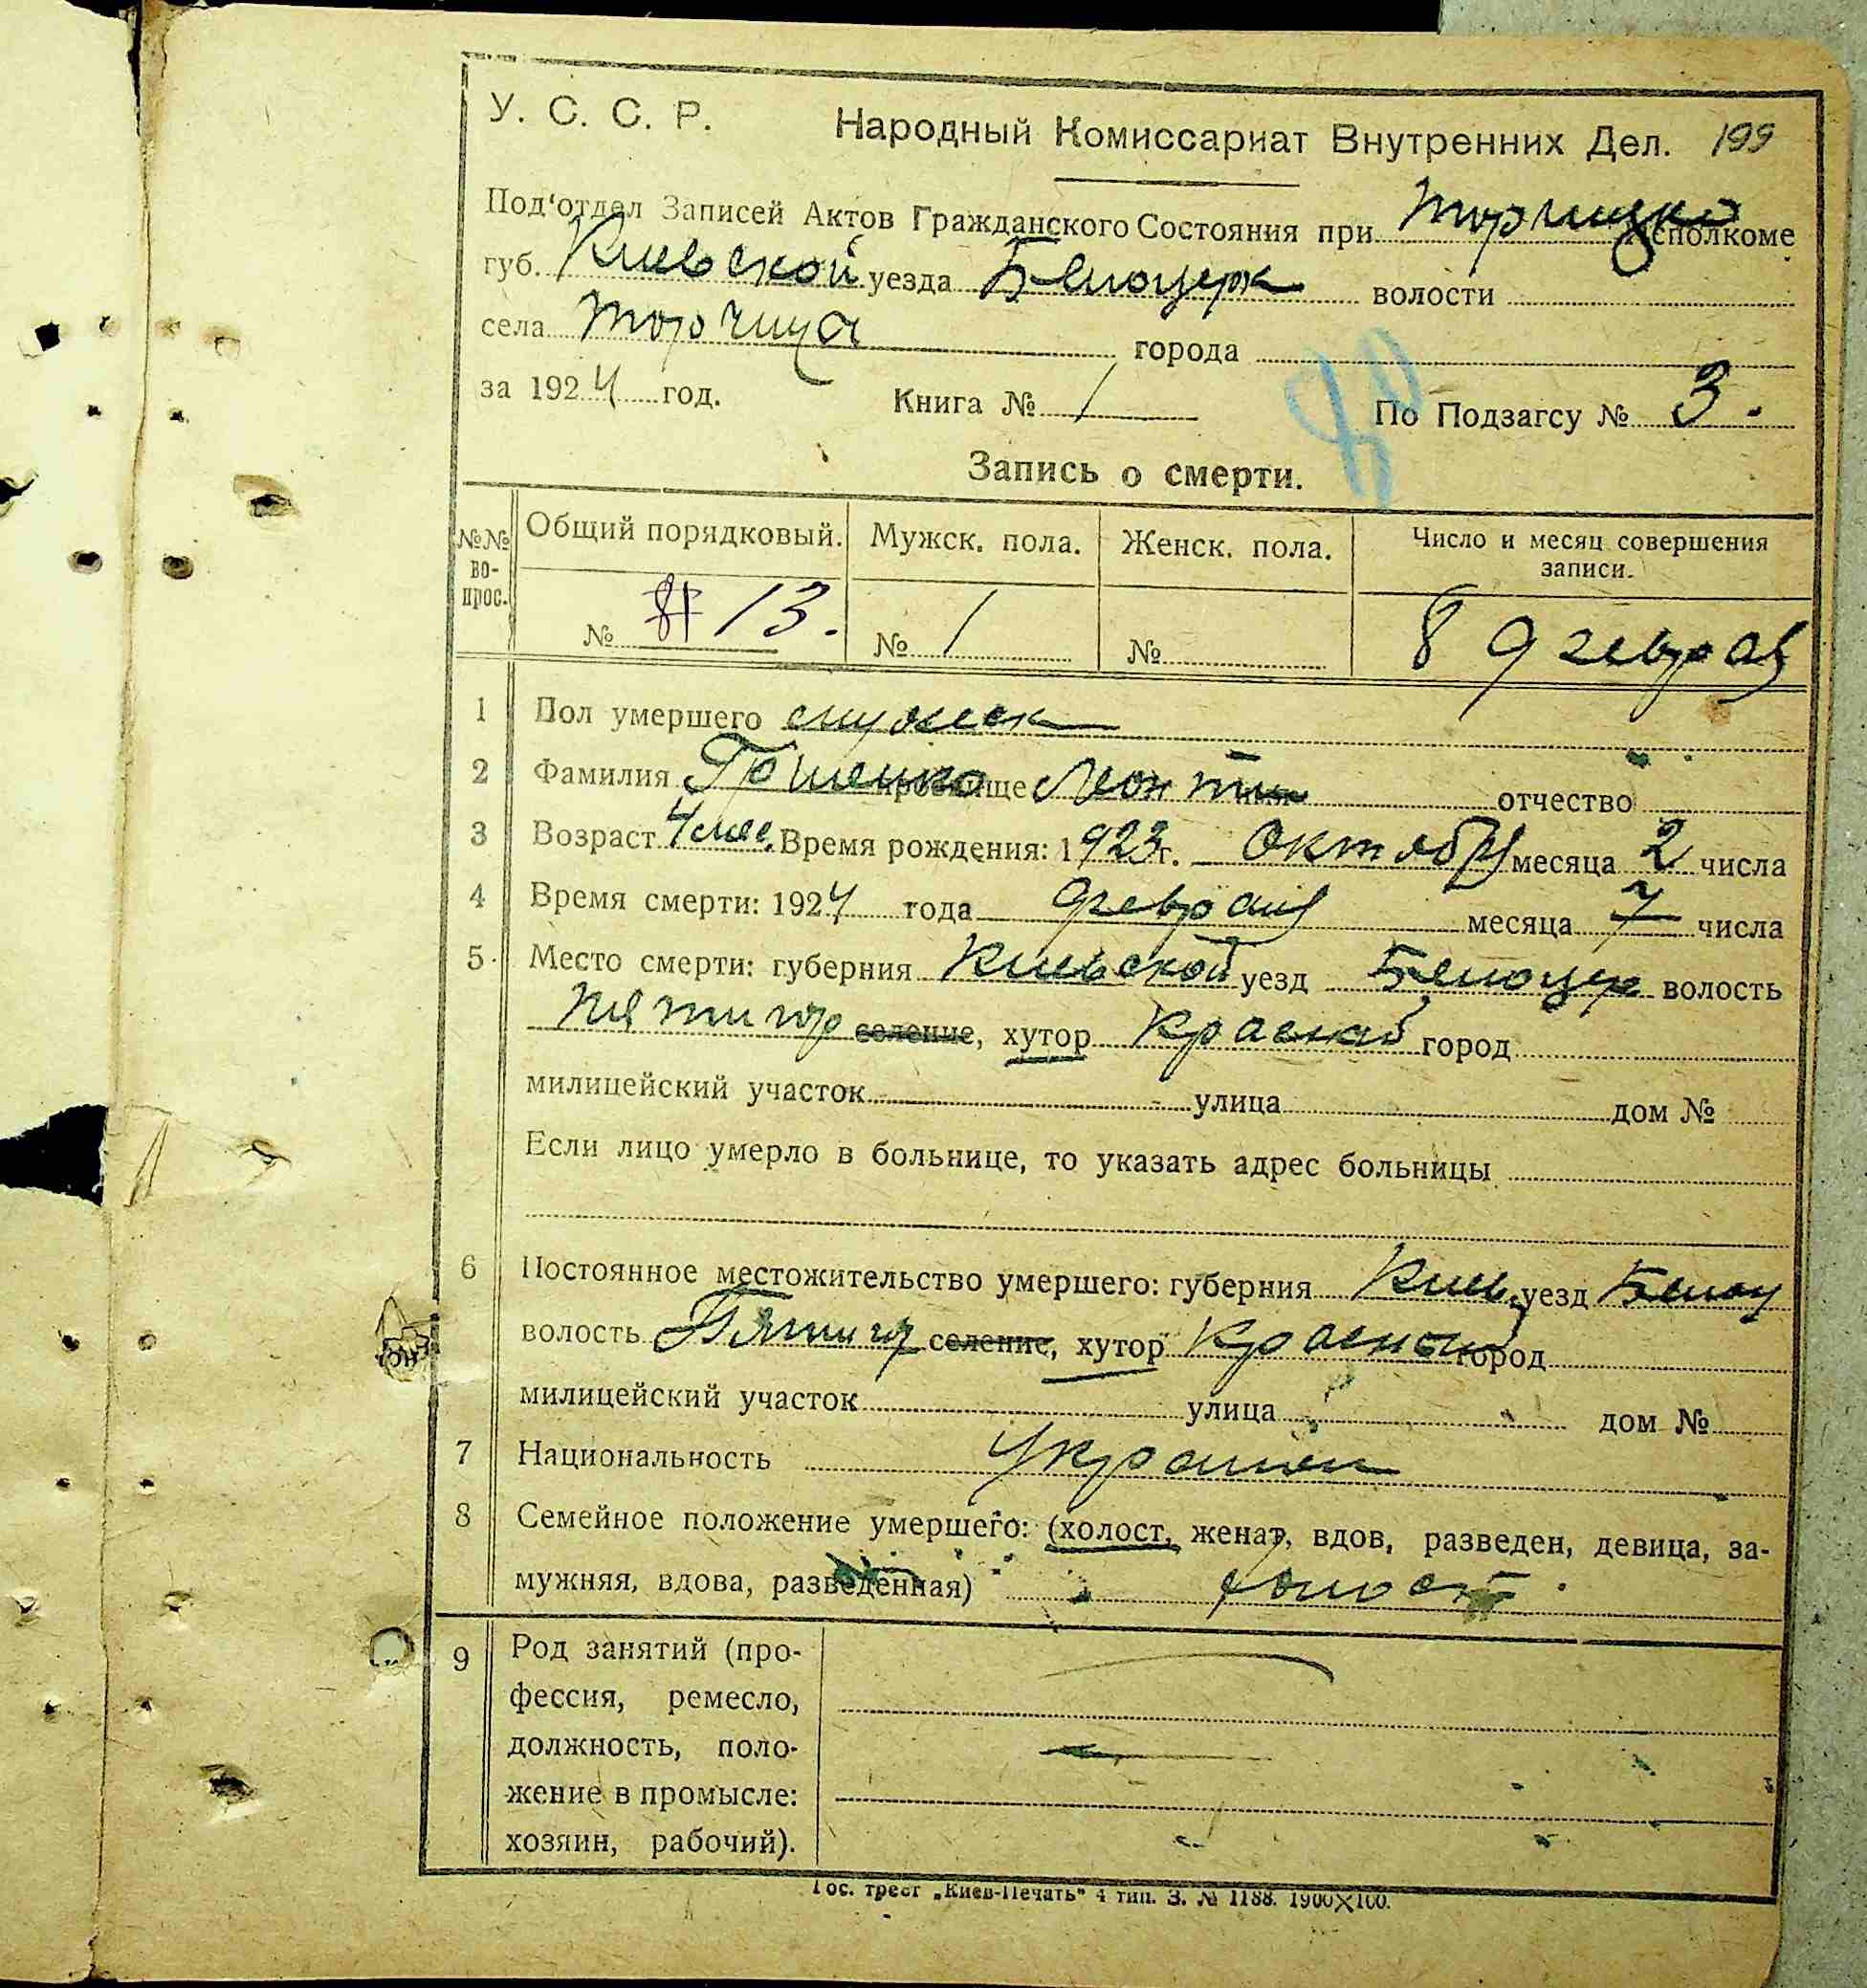 У. С. С. Р. Народный Комиссариат Внутренних Дел. 199
Под'отдел Записей Актов Гражданского Состояния при исполкоме
губ. Киевской уезда Белоцерк волости
села Торчица города
за 1924 год. Книга № 1 По Подзагсу № 3.
Запись о смерти.
№№ во-прос. Общий порядковый. Мужск. пола. Женск. пола. Число и месяц совершения записи.
№ 13. № 1 № 8 февраля
1 Пол умершего мужск
2 Фамилия прозвище Леонтий отчество
3 Возраст 4 мес. Время рождения: 1923 г. Октября месяца 2 числа
4 Время смерти: 1924 года февраля месяца 7 числа
5 Место смерти: губерния Киевской уезд Белоцер волость
Пятигор селение, хутор Красный город
милицейский участок улица дом №
Если лицо умерло в больнице, то указать адрес больницы
6 Постоянное местожительство умершего: губерния Киев. уезд Белоц
волость Пятигор селение, хутор Красный город
милицейский участок улица дом №
7 Национальность Украинец
8 Семейное положение умершего: (холост, женат, вдов, разведен, девица, за-
мужняя, вдова, разведенная) холост.
9 Род занятий (про-
фессия, ремесло,
должность, поло-
жение в промысле:
хозяин, рабочий).
Гос. трест „Киев-Печать" 4 тип. З. № 1188. 1900×100.